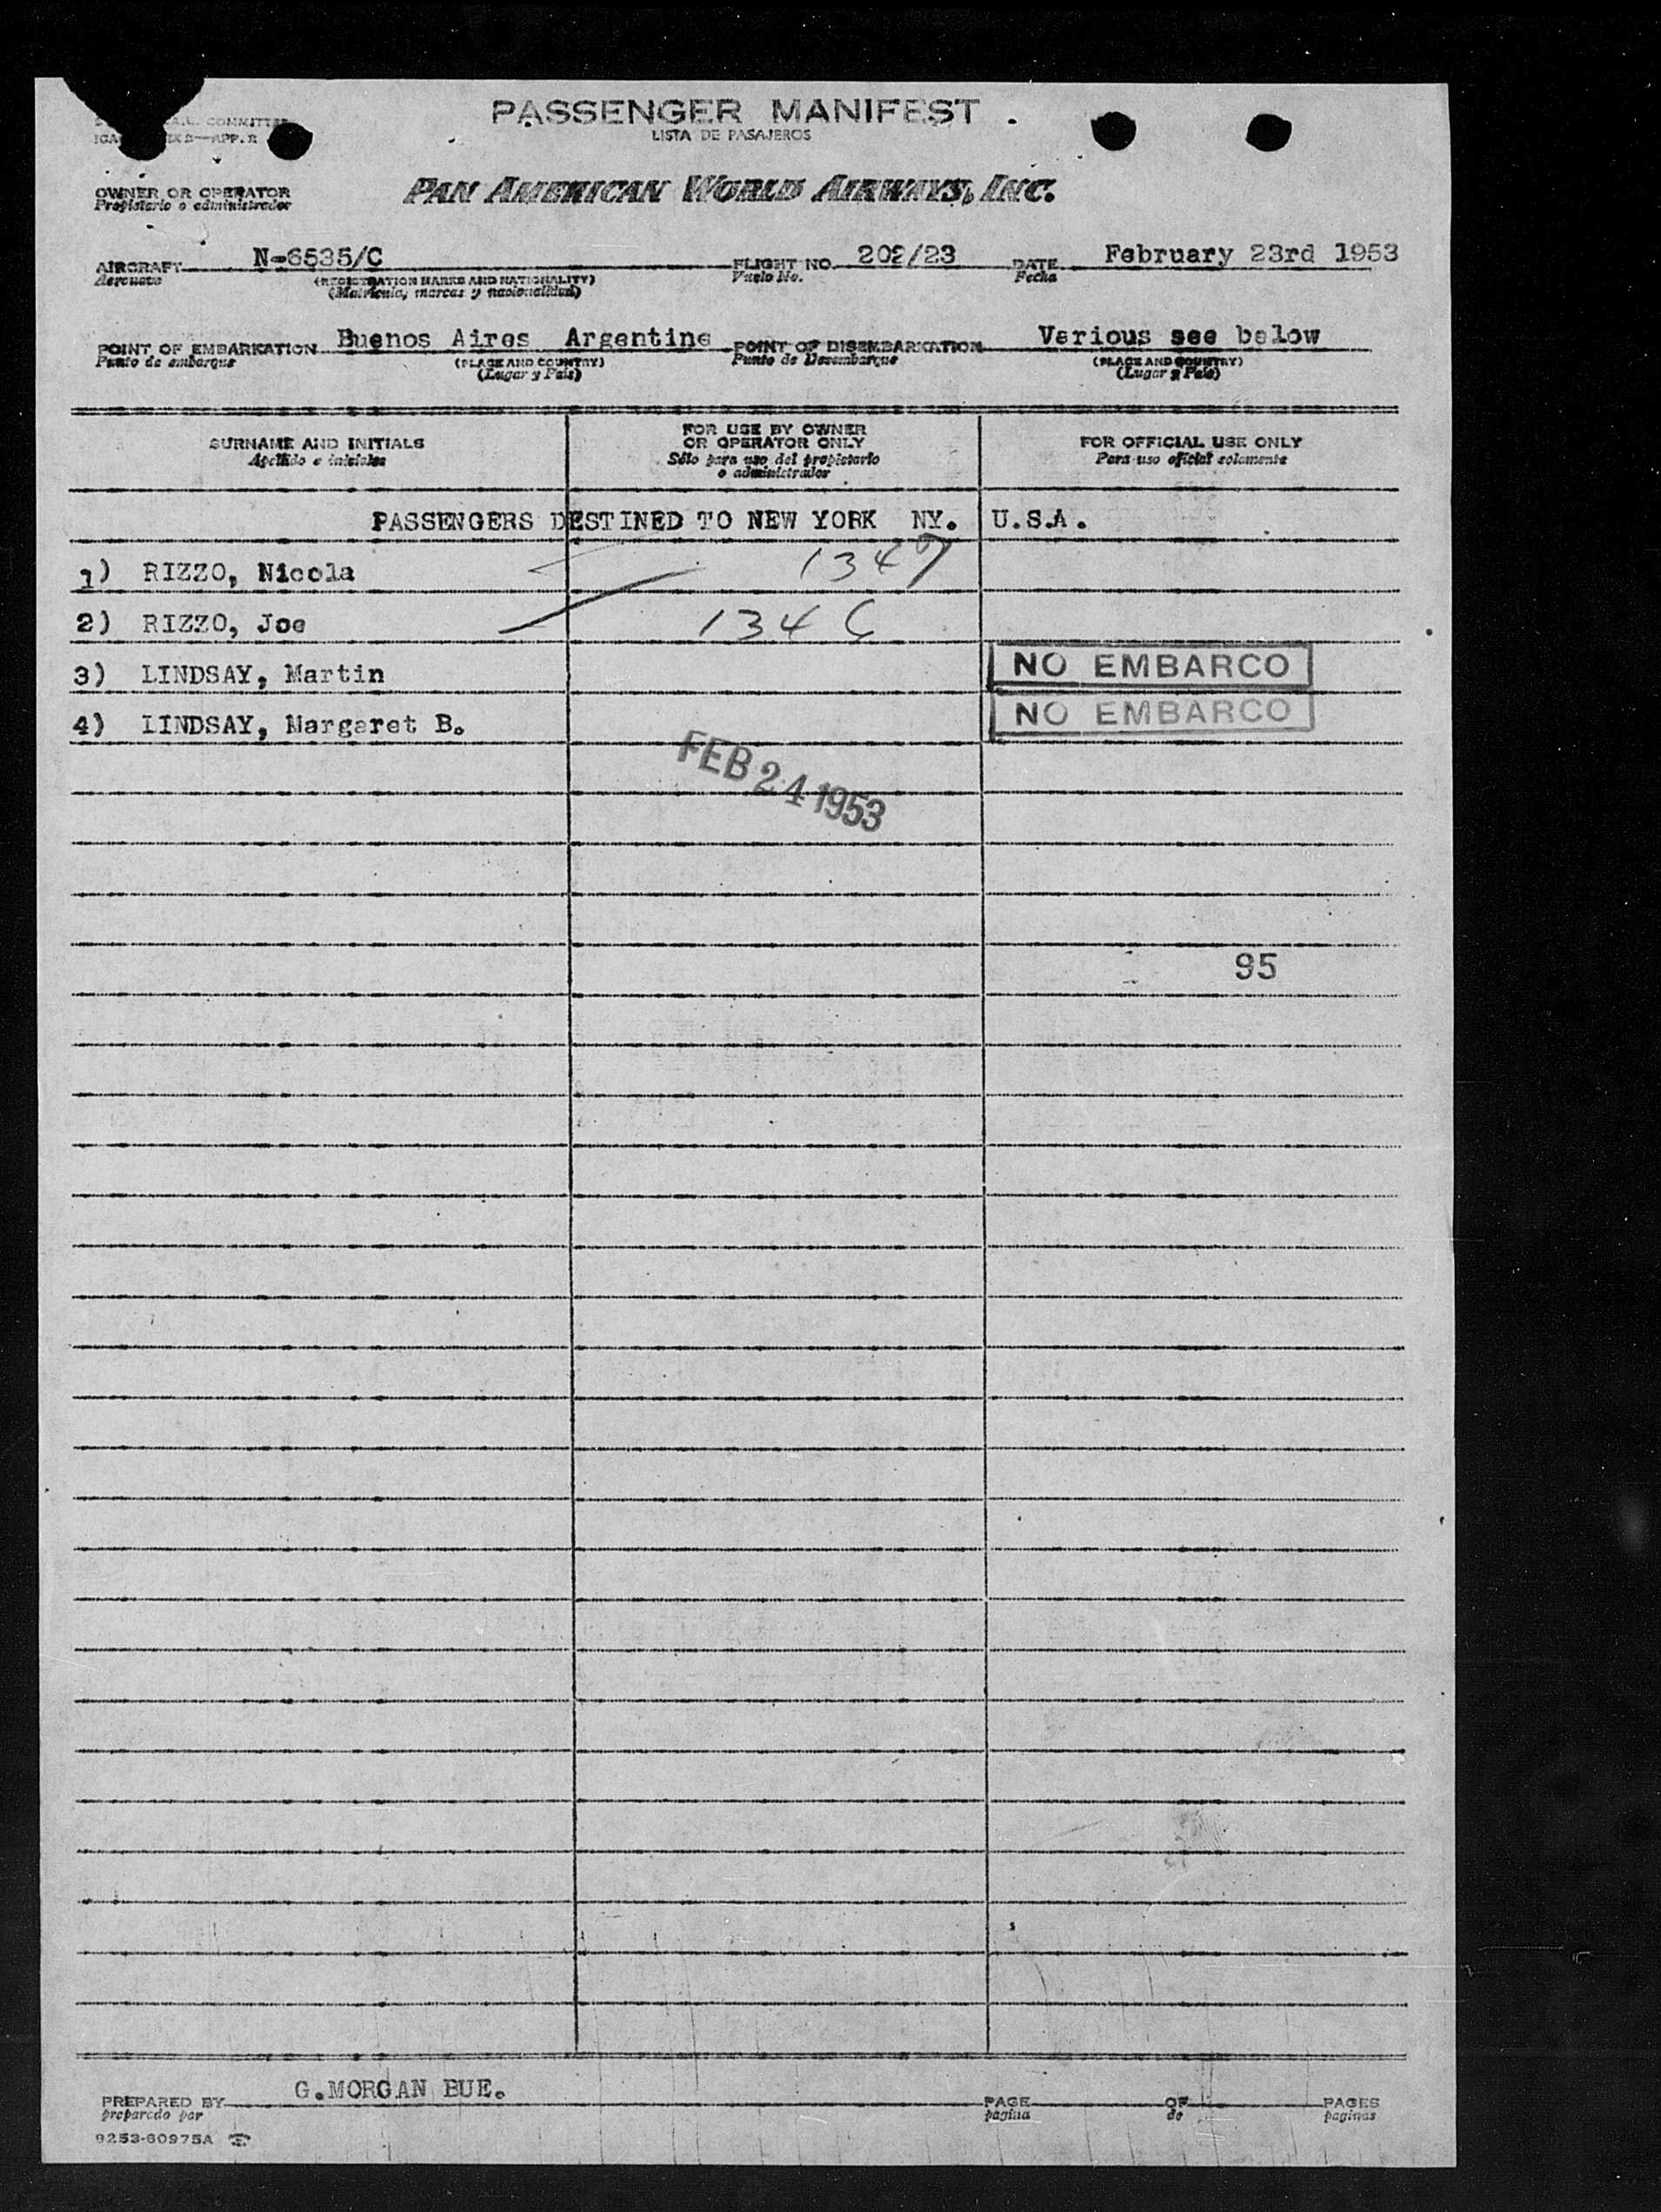 PASSENGER MANIFEST
LISTA DE PASAJEROS
COMMITTEE
APP. 2
OWNER OR OPERATOR
Propietario o administrador
PAN AMERICAN WORLD AIRWAYS, INC.
AIRCRAFT N-6535/C FLIGHT NO. 202/23 DATE February 23rd 1953
Aeronave (REGISTRATION MARKS AND NATIONALITY) Vuelo No. Fecha
(Matricula, marcas y nacionalidad)
POINT OF EMBARKATION Buenos Aires Argentine POINT OF DISEMBARKATION Various see below
Punto de embarque (PLACE AND COUNTRY) Punto de Desembarque (PLACE AND COUNTRY)
(Lugar y Pais) (Lugar y Pais)
SURNAME AND INITIALS
Apellido e iniciales
FOR USE BY OWNER
OR OPERATOR ONLY
Sólo para uso del propietario
o administrador
FOR OFFICIAL USE ONLY
Para uso oficial solamente
PASSENGERS DESTINED TO NEW YORK NY. U.S.A.
1) RIZZO, Nicola 1347
2) RIZZO, Joe 1346
3) LINDSAY, Martin NO EMBARCO
4) LINDSAY, Margaret B. NO EMBARCO
FEB 24 1953
95
PREPARED BY G.MORGAN BUE. PAGE OF PAGES
preparado por pagina de paginas
9253-60975A